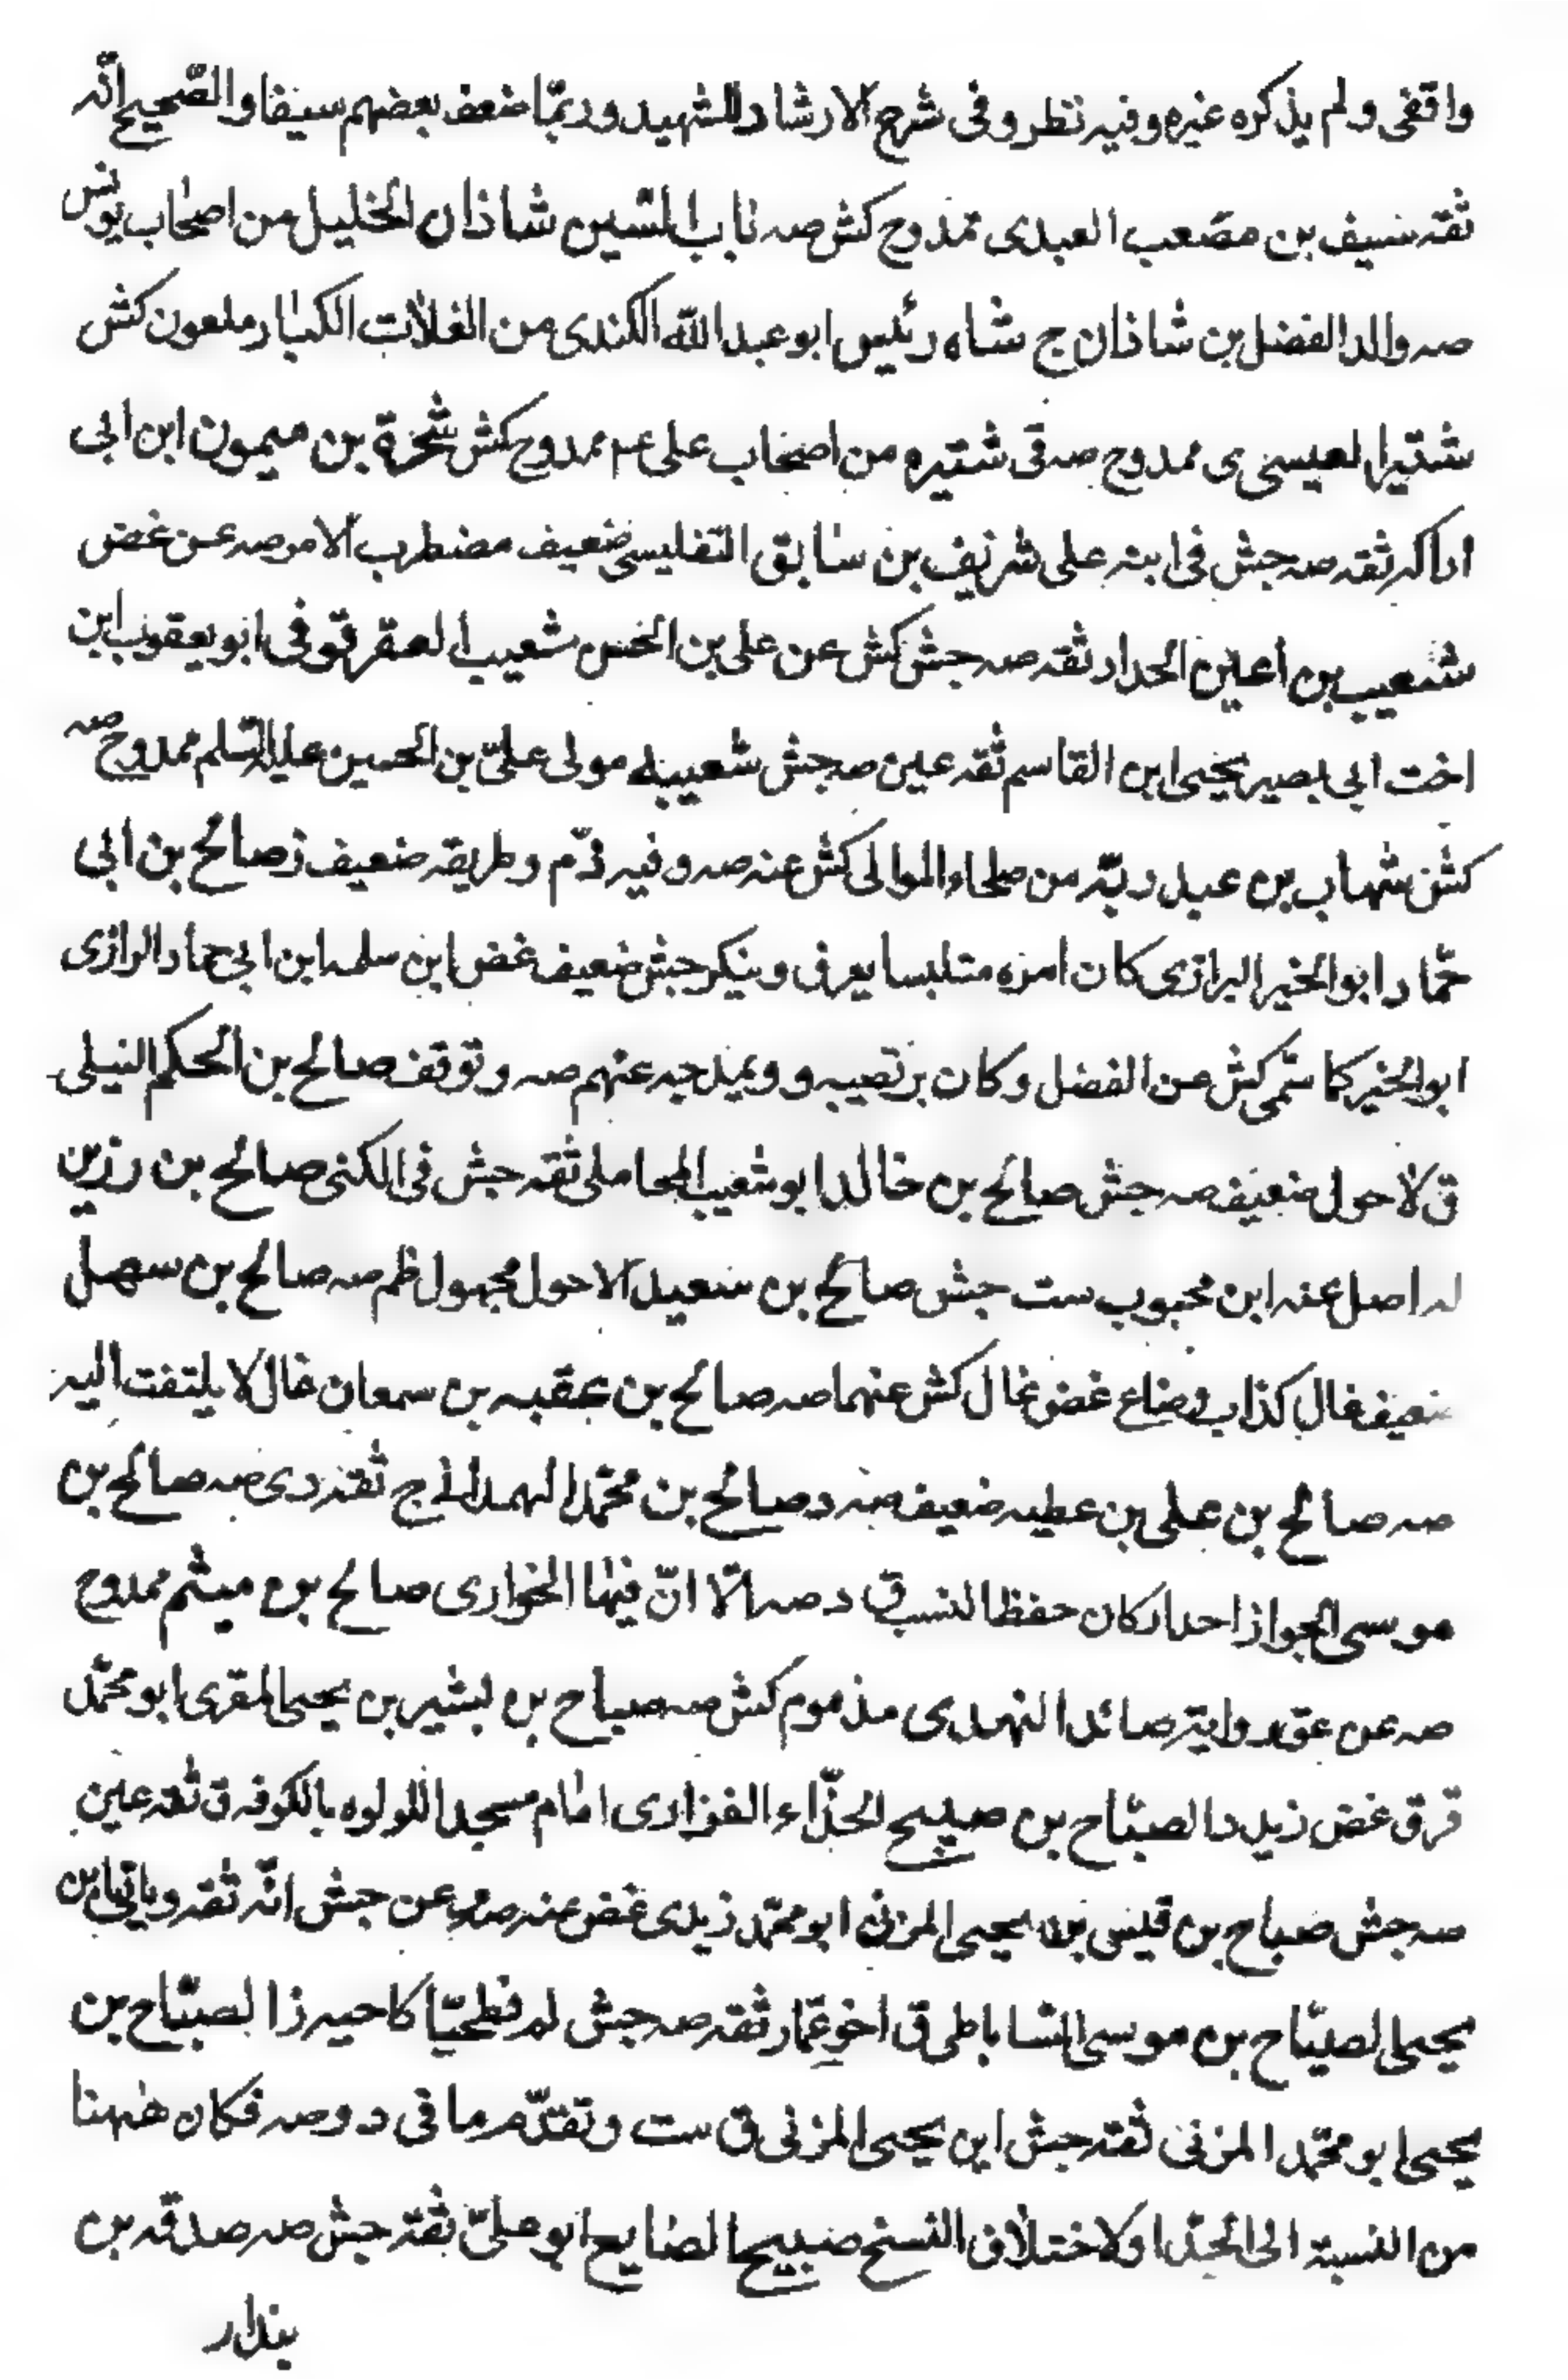 واقفى ولم يذكره غيره وفيه نظر وفى شرح الارشاد للشهيد وربمّا ضعف بعضهم سيفا والصّحيح انّه
ثقة سيف بن مصعب العبدى ممدوح كش صه باب الشين شاذان الخليل من اصحاب يونس
صه والد الفضل بن شاذان ج شاه رئيس ابو عبد اللّه الكندى من الغلات الكبار ملعون كش
شتير العيسى ى ممدوح صه قى شتيره من اصحاب على عم ممدوح كش شخرة بن ميمون ابن ابى
اراكه ثقه صه جش فى ابنه على شريف بن سابق التفليسى ضعيف مضطرب الامر صه عن غض
شعيب بن اعين الحداد ثقه صه جش كش عن على بن الحسن شعيب العقرقوفى ابو يعقوب ابن
اخت ابى بصير يحيى ابن القاسم ثقه عين صه جش شعيب مولى علىّ بن الحسين عليه السّلم ممدوح صه
كش شهاب بن عبد ربّه من صلحاء الموالى كش عنه صه وفيه ذمّ وطريقه ضعيف ز صالح بن ابى
حمّاد ابو الخير الرازى كان امره متلبسا يعرف وينكر جش ضعيف غض ابن سلمه ابن ابى حماد الرازى
ابو الخير كما سمّى كش عن الفضل وكان يرتضيه و ويمدحه عنهم صه وتوقف صالح بن الحكم النيلى
ق لاحول ضعيف صه جش صالح بن خالد ابو شعيب المحاملى ثقه جش فى الكنى صالح بن رزين
له اصل عنه ابن محبوب ست جش صالح بن سعيد الاحول مجهول ظم صه صالح بن سهل
ضعيف غال كذاب وضاع غض غال كش عنهما صه صالح بن عقبه بن سمعان غال لا يلتفت اليه
صه صالح بن على بن عطيه ضعيف صه د صالح بن محمّد الهمدانى ج ثقه دى صه صالح بن
موسى الجواز احد اركان حفظ النسب ق د صه الّا انّ فيها الخوارى صالح بن ميثم ممدوح
صه عن عق رواية صائد النهدى مذموم كش صه صباح بن بشير بن يحيى المقرى ابو محمّد
قر ق غض زيد د الصبّاح بن صبيح الحذّاء الفزارى امام مسجد اللولوه بالكوفه ق ثقه عين
صه جش صباح بن قيس بن يحيى المزنى ابو محمّد زيدى غض عنه صه عن جش انّه ثقه وياتى ابن
يحيى الصبّاح بن موسى الساباطى ق اخو عمّار ثقه صه جش لم فطحيّا كاخيه ز الصبّاح بن
يحيى ابو محمّد المزنى ثقة جش ابن يحيى المزنى ق ست وتقدّم ما فى د وصه فكان ههنا
من النسبة الى الجدّ او لاختلاف النسخ صبيح الصايع ابو علىّ ثقة جش صه صدقه بن
بندار